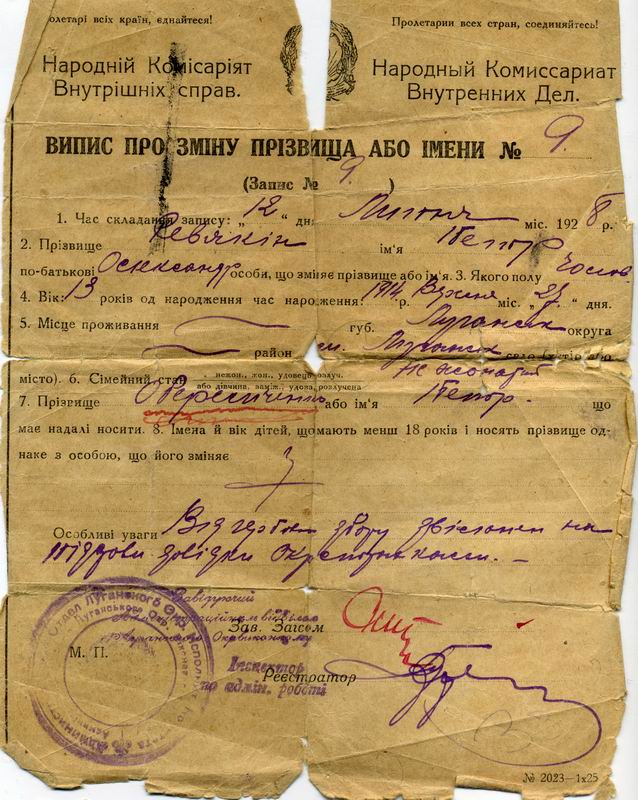 Пролетарі всіх країн, єднайтеся!
Пролетарии всех стран, соединяйтесь!
Народній Комісаріят
Внутрішніх справ.
Народный Комиссариат
Внутренних Дел.
ВИПИС ПРО ЗМІНУ ПРІЗВИЩА АБО ІМЕНИ № 9.
(Запис № 9.)
1. Час складання запису: „ 12 “ дня Липня міс. 1928 р.
2. Прізвище Ревякін ім'я Петор
по-батькові Олександр особи, що зміняє прізвище або ім'я. 3. Якого полу Чолов.
4. Вік: 13 років од народження час народження: 1914 р. міс. дня.
5. Місце проживання губ. Луганськ округа
район м. Луганськ
місто). 6. Сімейний стан нежон., жон., удовець, розлуч. або дівчина, заміж., удова, розлучена не жонатий
7. Прізвище або ім'я Петор. що
має надалі носити. 8. Імена й вік дітей, що мають менш 18 років і носять прізвище од-
наке з особою, що його зміняє
Особливі уваги Від гербов. збору звільнен на
підставі довідки
Завідуючий
Зав. Загсом
М. П.
Інспектор
по адмін. роботі
Реєстратор
№ 2023—1х25